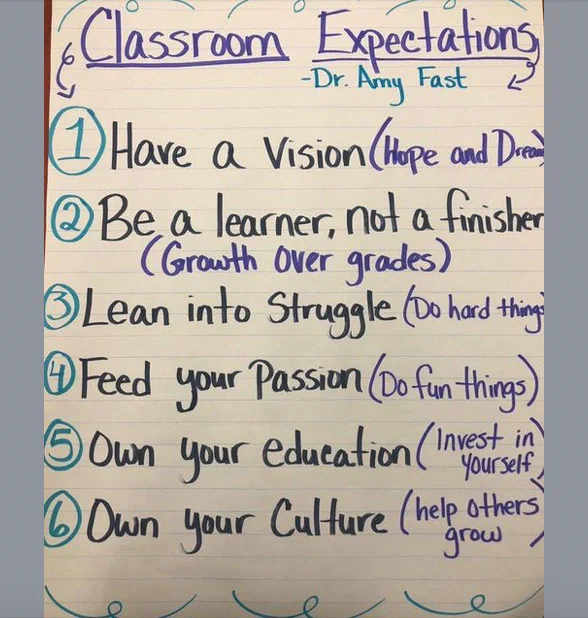 Classroom Expectations
-Dr. Amy Fast
1 Have a Vision (Hope and Dream)
2 Be a learner, not a finisher
(Growth Over grades)
3 Lean into Struggle (Do hard things
4 Feed your Passion (Do fun things)
5 Own your education (Invest in
Yourself)
6 Own your Culture (help others
grow)